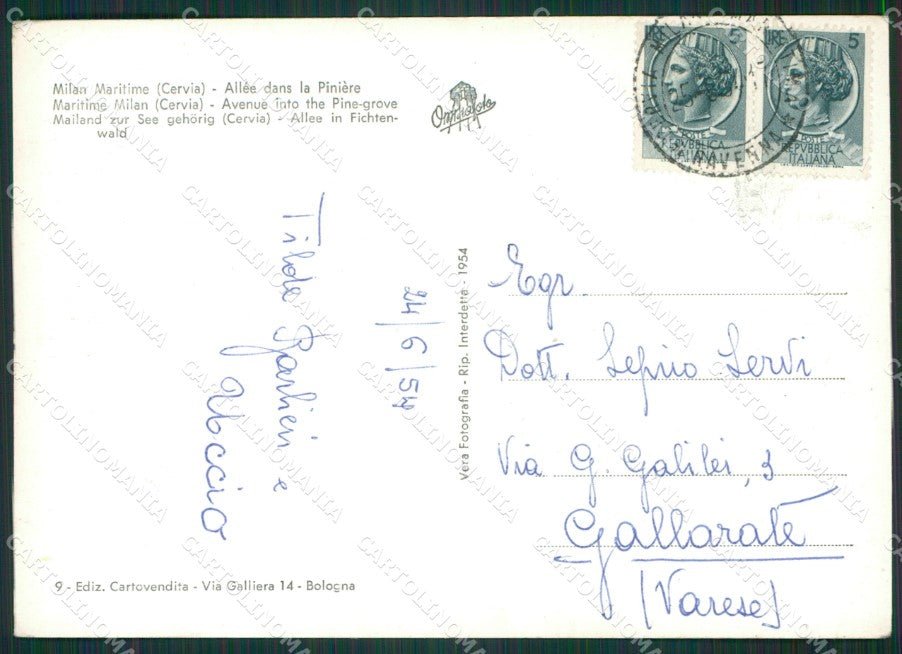 Milan Maritime (Cervia) - Allée dans la Pinière
Maritime Milan (Cervia) - Avenue into the Pine-grove
Mailand zur See gehörig (Cervia) - Allee in Fichten-
wald
LIRE 5
POSTE
REPVBBLICA
ITALIANA
LIRE 5
POSTE
REPVBBLICA
ITALIANA
RAVENNA
Tilde e
Uccio
24/6/54
Vera Fotografia - Rip. Interdetta - 1954
Egr.
Dott. Servi
Via G. Galilei, 3
Gallarate
(Varese)
9 - Ediz. Cartovendita - Via Galliera 14 - Bologna
CARTOLINOMANIA